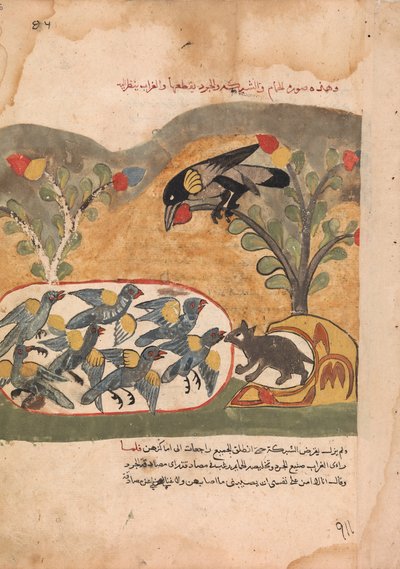 وهذه صورة الحمام والشبركة والجرد يقطعها والغراب ينظر اليه
ولم يزل يقرض الشبركة حتى انطلق الجميع راجعات الى اماكنهن فلما
راى الغراب صنيع الجرد وتخليصه الحمام رغب في مصادقته
وقال انا لا امن على نفسي ان يصيبني ما اصابهن ولا غنا عن